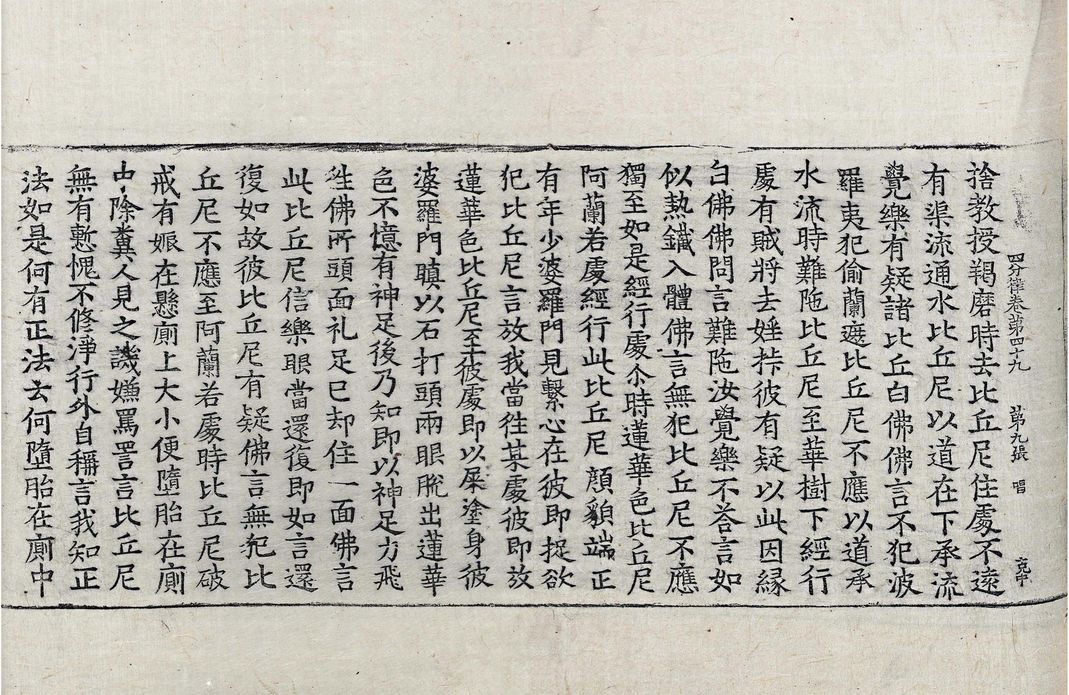 四分律卷第四十九　第九張　唱　克中
捨教授羯磨時去比丘尼住處不遠
有渠流通水比丘尼以道在下承流
覺樂有疑諸比丘白佛佛言不犯波
羅夷犯偷蘭遮比丘尼不應以道承
水流時難陁比丘尼至華樹下經行
處有賊將去婬㭱彼有疑以此因緣
白佛佛問言難陁汝覺樂不荅言如
似熱鐵入體佛言無犯比丘尼不應
獨至如是經行處尒時蓮華色比丘尼
阿蘭若處經行此比丘尼顔貌端正
有年少婆羅門見繫心在彼即捉欲
犯比丘尼言放我當往某處彼即放
蓮華色比丘尼至彼處即以屎塗身彼
婆羅門瞋以石打頭兩眼脫出蓮華
色不憶有神足後乃知即以神足力飛
往佛所頭面礼足已却住一面佛言
此比丘尼信樂眼當還復即如言還
復如故彼比丘尼有疑佛言無犯比
丘尼不應至阿蘭若處時比丘尼破
戒有娠在懸廁上大小便墮胎在廁
中除糞人見之譏嫌罵詈言比丘尼
無有慙愧不修淨行外自稱言我知正
法如是何有正法云何墮胎在廁中